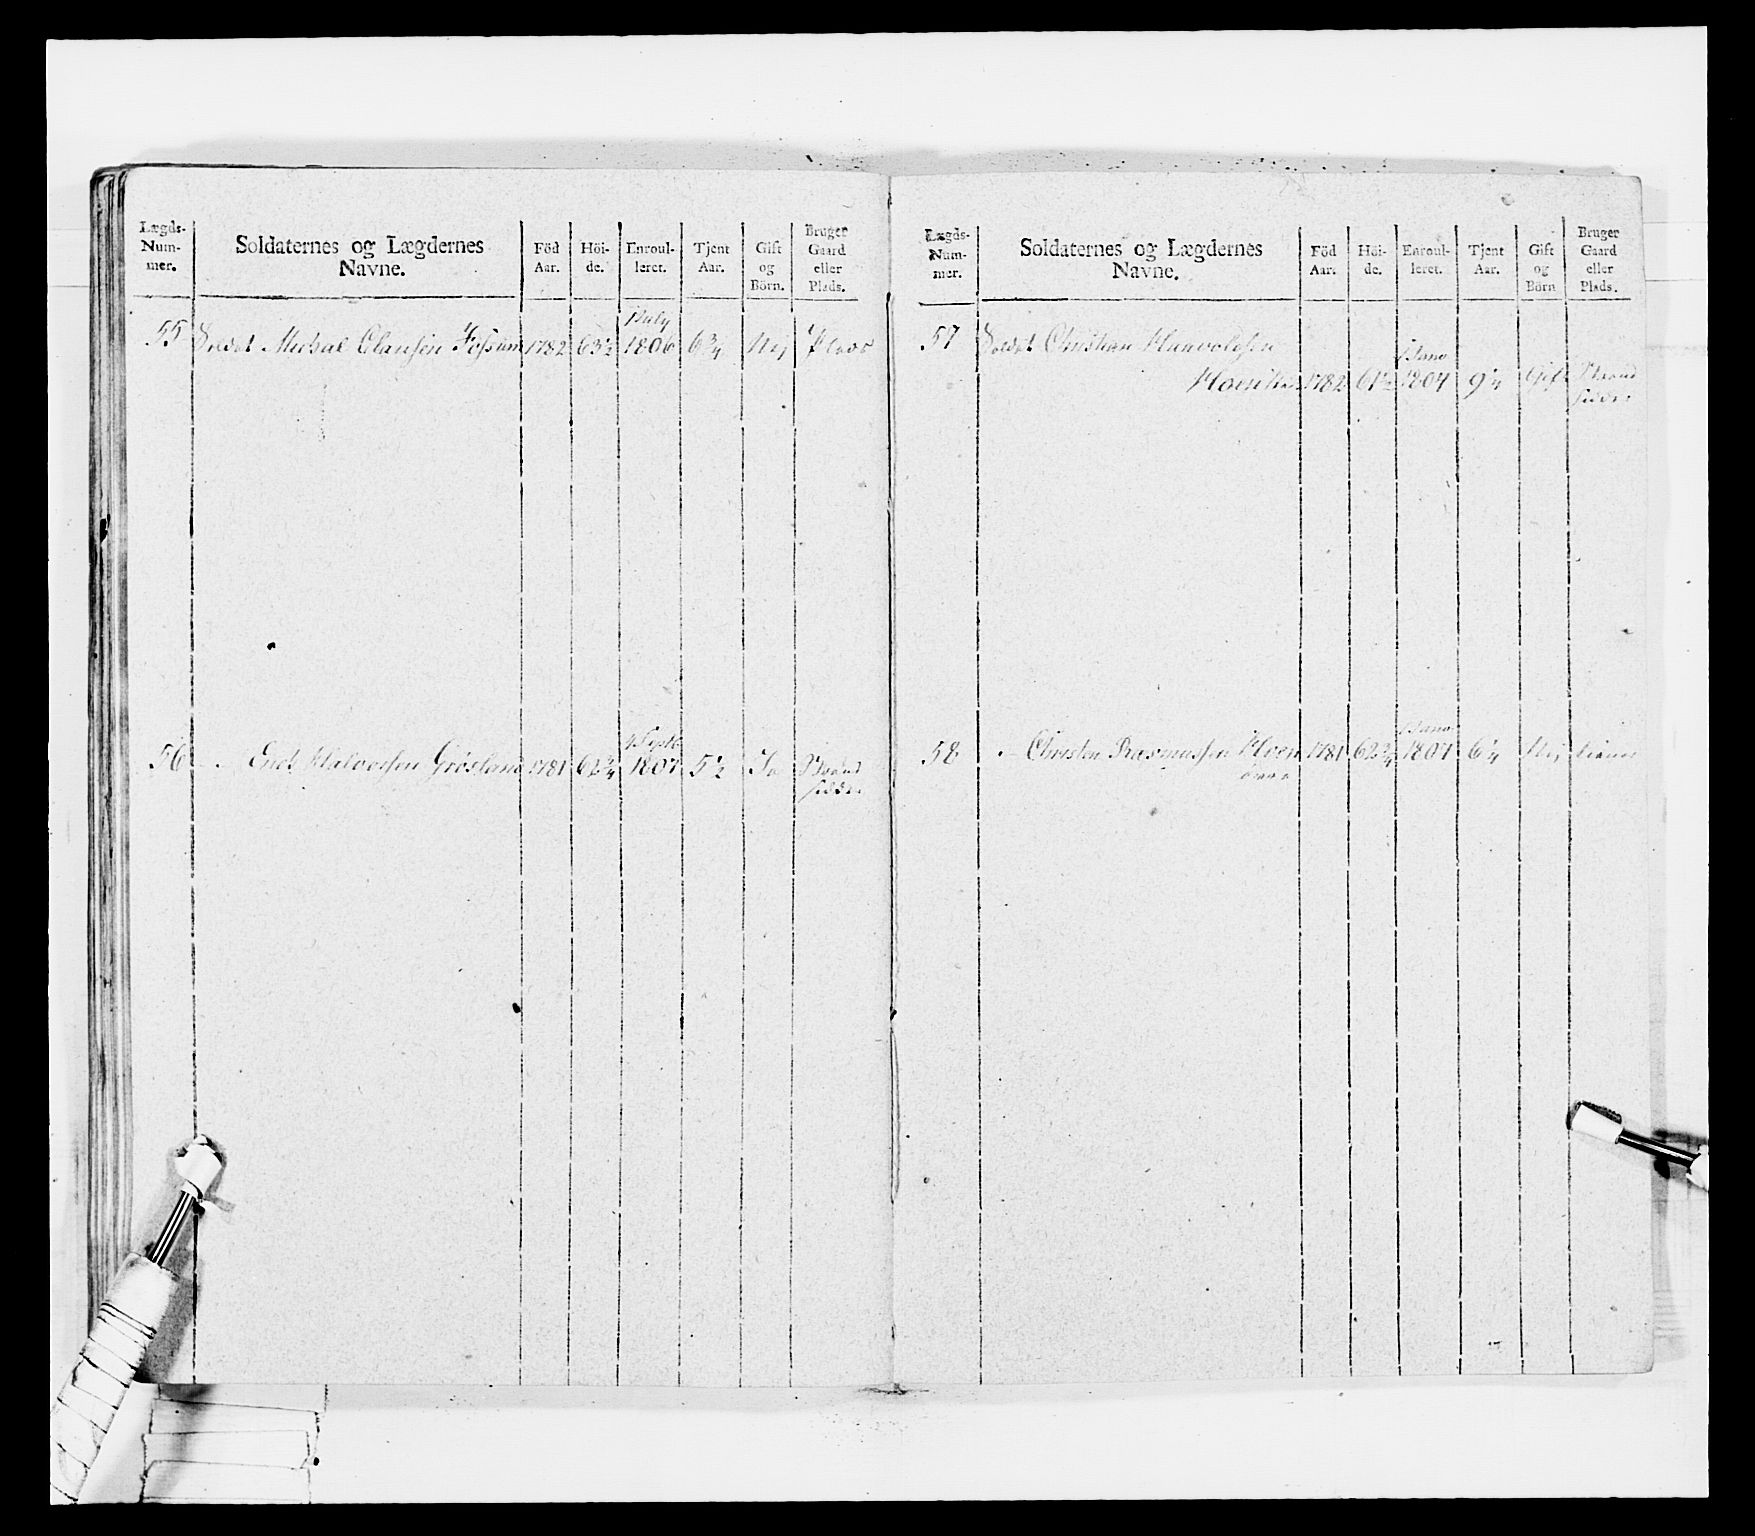 Lægds-Num-mer. | Soldaternes og Lægdernes Navne. | Föd Aar. | Höi-de. | Enroul-leret. | Tjent Aar. | Gift og Börn. | Bruger Gaard eller Plads.
July
55 Soldat Michal Clausen Fossum 1782 63½ 1806 6¾ Nej Plads
Septb
56 Erich Halvorsen Grösland 1781 62¾ 1807 5½ Ja Strand
sidder
Lægds-Num-mer. | Soldaternes og Lægdernes Navne. | Föd Aar. | Höi-de. | Enroul-leret. | Tjent Aar. | Gift og Börn | Bruger Gaard eller Plads.
57 Soldat Christian
Janv
1782 61½ 1804 9¼ Gift Strand
sidder
Janv
58 Christen Rasmussen Hoen 1781 62¾ 1807 6¼ Nej tiener